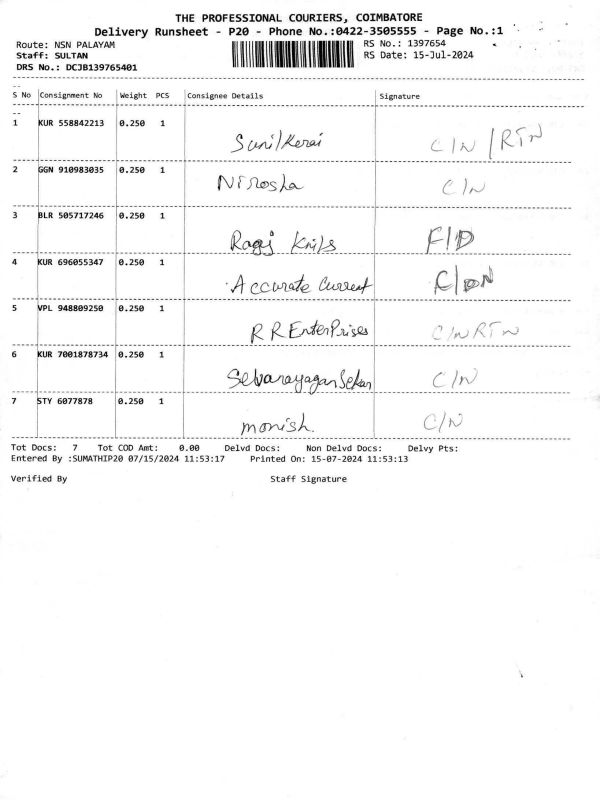 THE PROFESSIONAL COURIERS, COIMBATORE
Delivery Runsheet - P20 - Phone No.:0422-3505555 - Page No.:1
Route: NSN PALAYAM RS No.: 1397654
Staff: SULTAN RS Date: 15-Jul-2024
DRS No.: DCJB139765401
S No Consignment No Weight PCS Consignee Details Signature
1 KUR 558842213 0.250 1
Sunil Kerai C/N / RTN
2 GGN 910983035 0.250 1
Nirosha C/N
3 BLR 505717246 0.250 1
Ragj Knits F/D
4 KUR 696055347 0.250 1
Accurate Current
5 VPL 948809250 0.250 1
R R EnterPrises C/N RTN
6 KUR 7001878734 0.250 1
Selvanayagan Sekar C/N
7 STY 6077878 0.250 1
monish. C/N
Tot Docs: 7 Tot COD Amt: 0.00 Delvd Docs: Non Delvd Docs: Delvy Pts:
Entered By :SUMATHIP20 07/15/2024 11:53:17 Printed On: 15-07-2024 11:53:13
Verified By Staff Signature